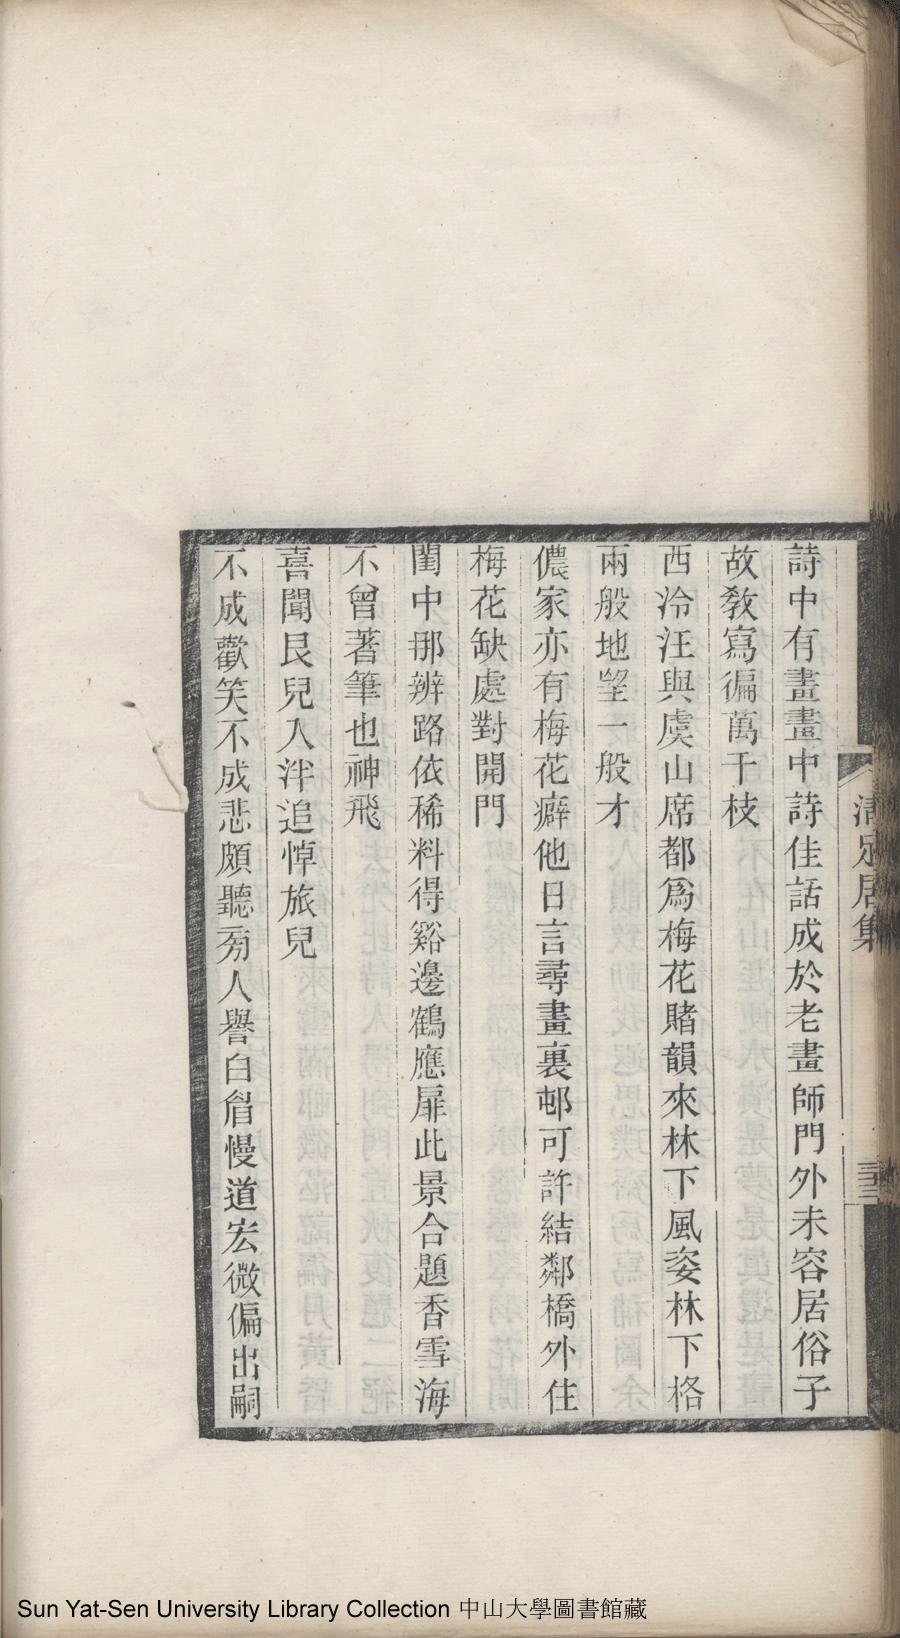 清足居集
三三
詩中有畫畫中詩佳話成於老畫師門外未容居俗子
故敎寫徧萬千枝
西泠汪與虞山席都爲梅花賭韻來林下風姿林下格
兩般地望一般才
儂家亦有梅花癖他日言尋畫裏邨可許結鄰橋外住
梅花缺處對開門
閨中那辨路依稀料得谿邊鶴應扉此景合題香雪海
不曾著筆也神飛
喜聞艮兒入泮追悼旅兒
不成歡笑不成悲頗聽旁人譽白眉慢道宏微偏出嗣
Sun Yat-Sen University Library Collection 中山大學圖書館藏